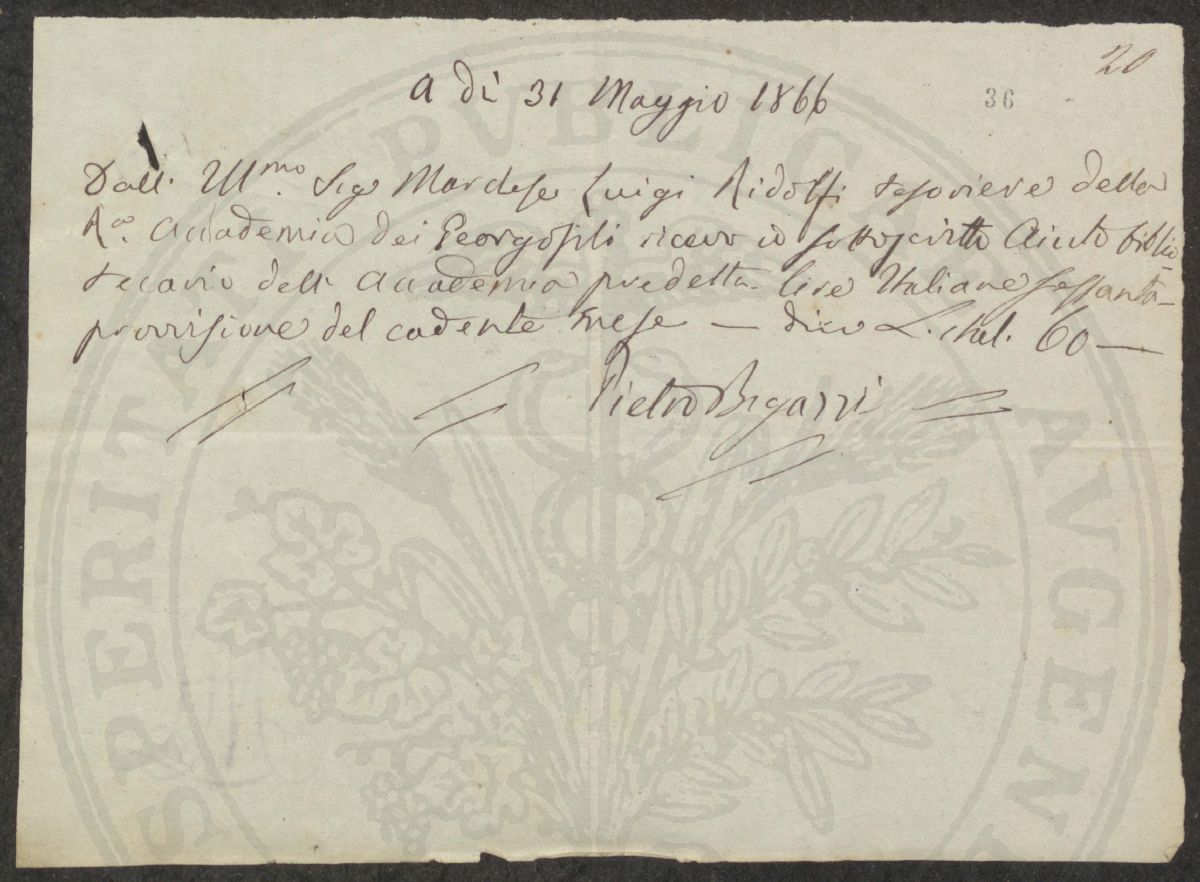 20
36
a dì 31 Maggio 1866
Dall' Ill.mo Sig Marchese Luigi Ridolfi tesoriere della
R.a Accademia dei Georgofili ricevo io sottoscritto Aiuto biblio-
tecario dell' Accademia predetta lire Italiane sessanta
provvisione del cadente mese — dico L. Ital. 60 —
Pietro Bigazzi
PROSPERITATI PVBLICAE AVGENDAE